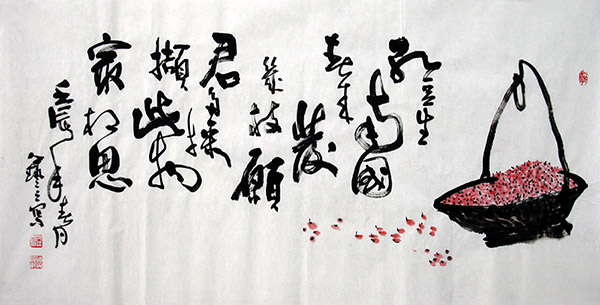 红豆生
南國
春来
發
幾枝願
君多採
擷此物
最相思
壬辰年春月
寫